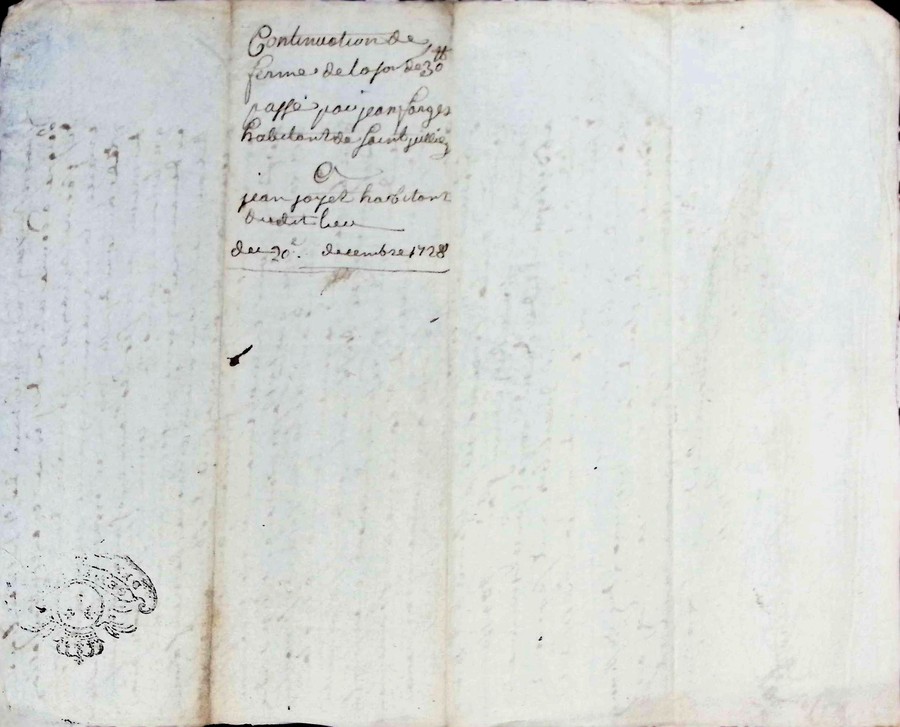 Continuation de
ferme de la so͞n de 30 ₶
passé par jean farges
habitant de saint jullien
A
jean joyet habitant
dudit lieu
du 20e. decembre 1728